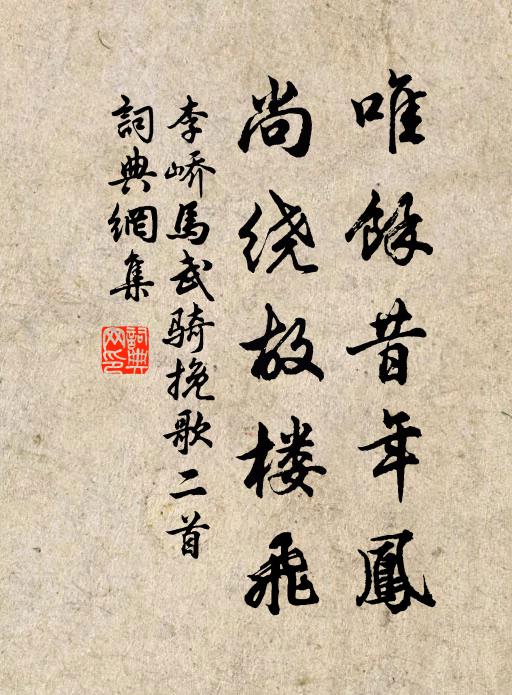 唯餘昔年鳳
尚绕故楼飛
李峤馬武骑挽歌二首
詞典網集
詞典
网印